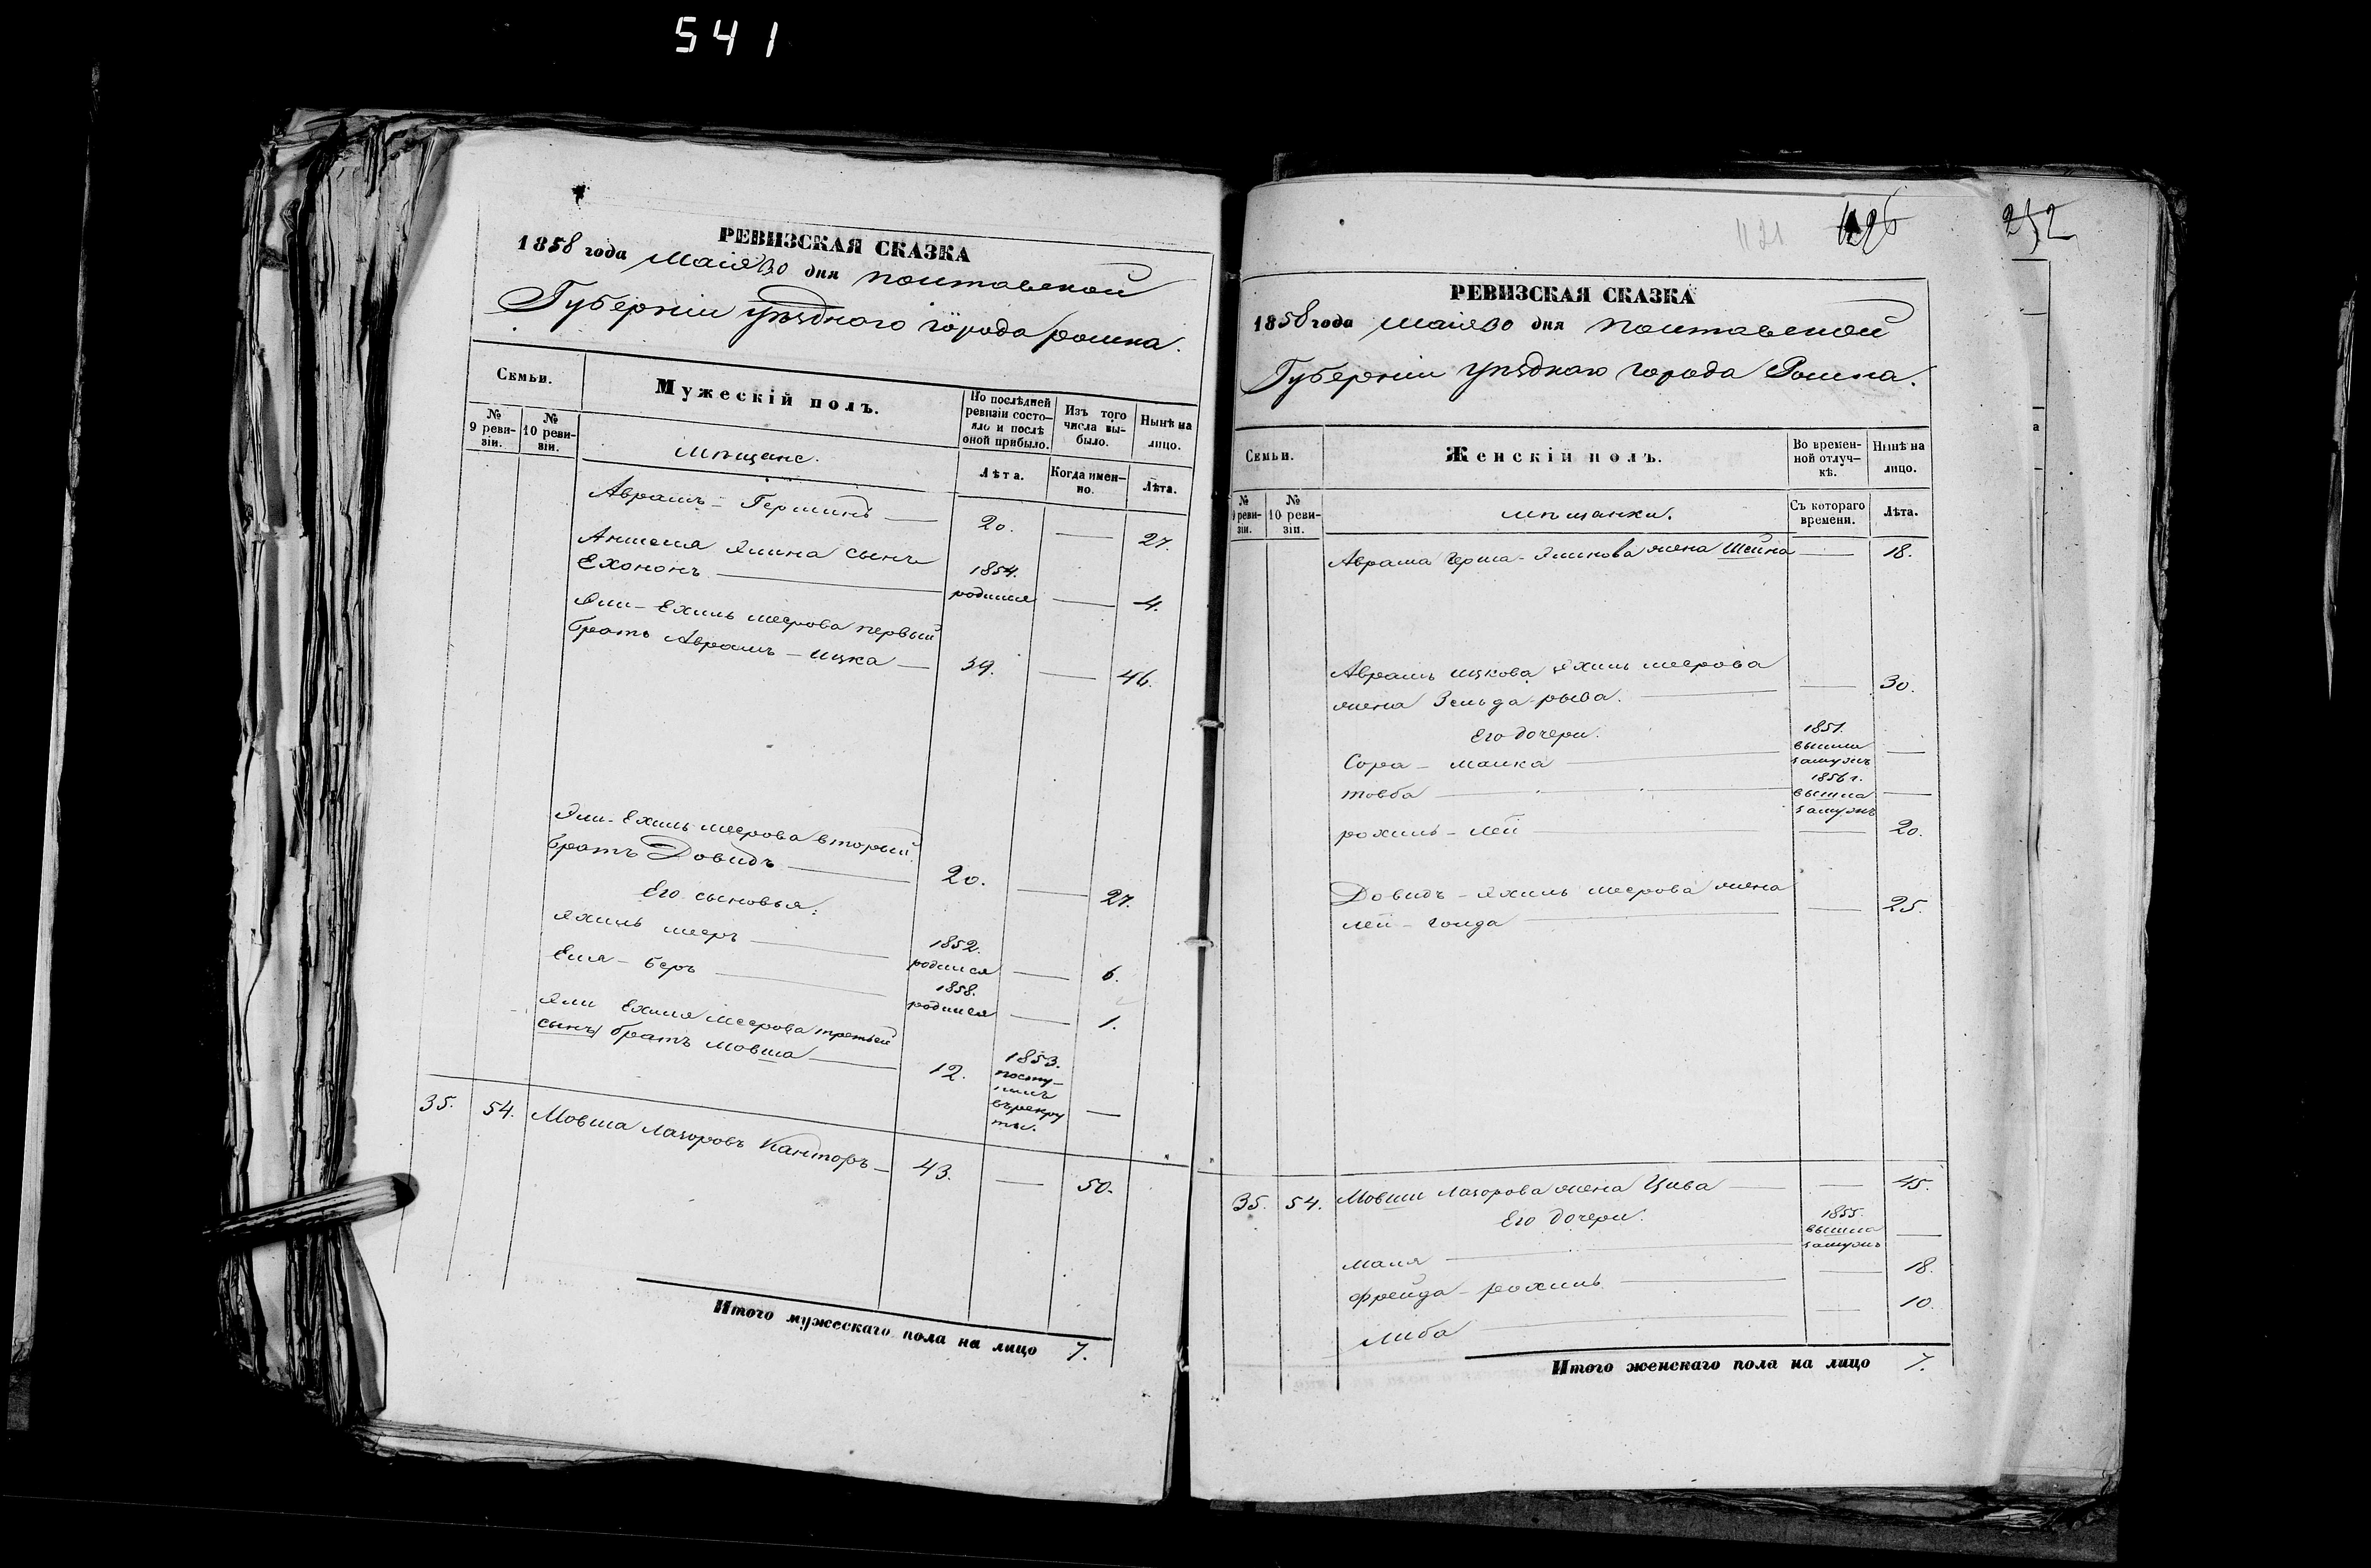 541
РЕВИЗСКАЯ СКАЗКА
1858 года Маія 30 дня Полтавской
Губерніи уѣзднаго города Ромна.
Семьи.
Мужескій полъ.
По послѣдней ревизіи состояло и послѣ оной прибыло.
Изъ того числа выбыло.
Нынѣ на лицо.
№ 9 ревизіи.
№ 10 ревизіи.
Мѣщане.
Лѣта.
Когда именно.
Лѣта.
Аврамъ-Гершинъ — 20. — 27.
Аншеля Ялина сынъ
Ехононъ — 1854. родился — 4.
Яли-Ехиль Меерова первый
братъ Аврамъ-Ицка — 39. — 46.
Яли-Ехиль Меерова вторый
братъ Довидъ — 20. — 27.
Его сыновья:
Яхиль Мееръ — 1852. родился — 6.
Еля-Беръ — 1858. родился — 1.
Яли Ехиля Меерова третьей
сынъ братъ Мовша — 12. 1853. поступилъ въ рекруты. —
35. 54. Мовша Лазоровъ Канторъ — 43. — 50.
Итого мужескаго пола на лицо 7.
1126
252
РЕВИЗСКАЯ СКАЗКА
1858 года Маія 30 дня Полтавской
Губерніи уѣзднаго города Ромна.
Семьи.
Женскій полъ.
Во временной отлучкѣ.
Нынѣ на лицо.
№ 9 ревизіи.
№ 10 ревизіи.
Мѣщанки.
Съ котораго времени.
Лѣта.
Аврама Герша-Яликова жена Шейна — 18.
Аврамъ Ицкова Яхиль Меерова
жена Зельда-рыва. — 30.
Его дочери.
Сора-Малка — 1851. вышла замужъ —
Товба — 1856 г. вышла замужъ —
Рохиль-Лей — 20.
Довидъ-Яхиль Меерова жена
Лей-Голда — 25.
35. 54. Мовши Лазорова жена Цива — 45.
Его дочери.
Маля — 1855. вышла замужъ —
Фрейда-Рохиль — 18.
Либа — 10.
Итого женскаго пола на лицо 7.